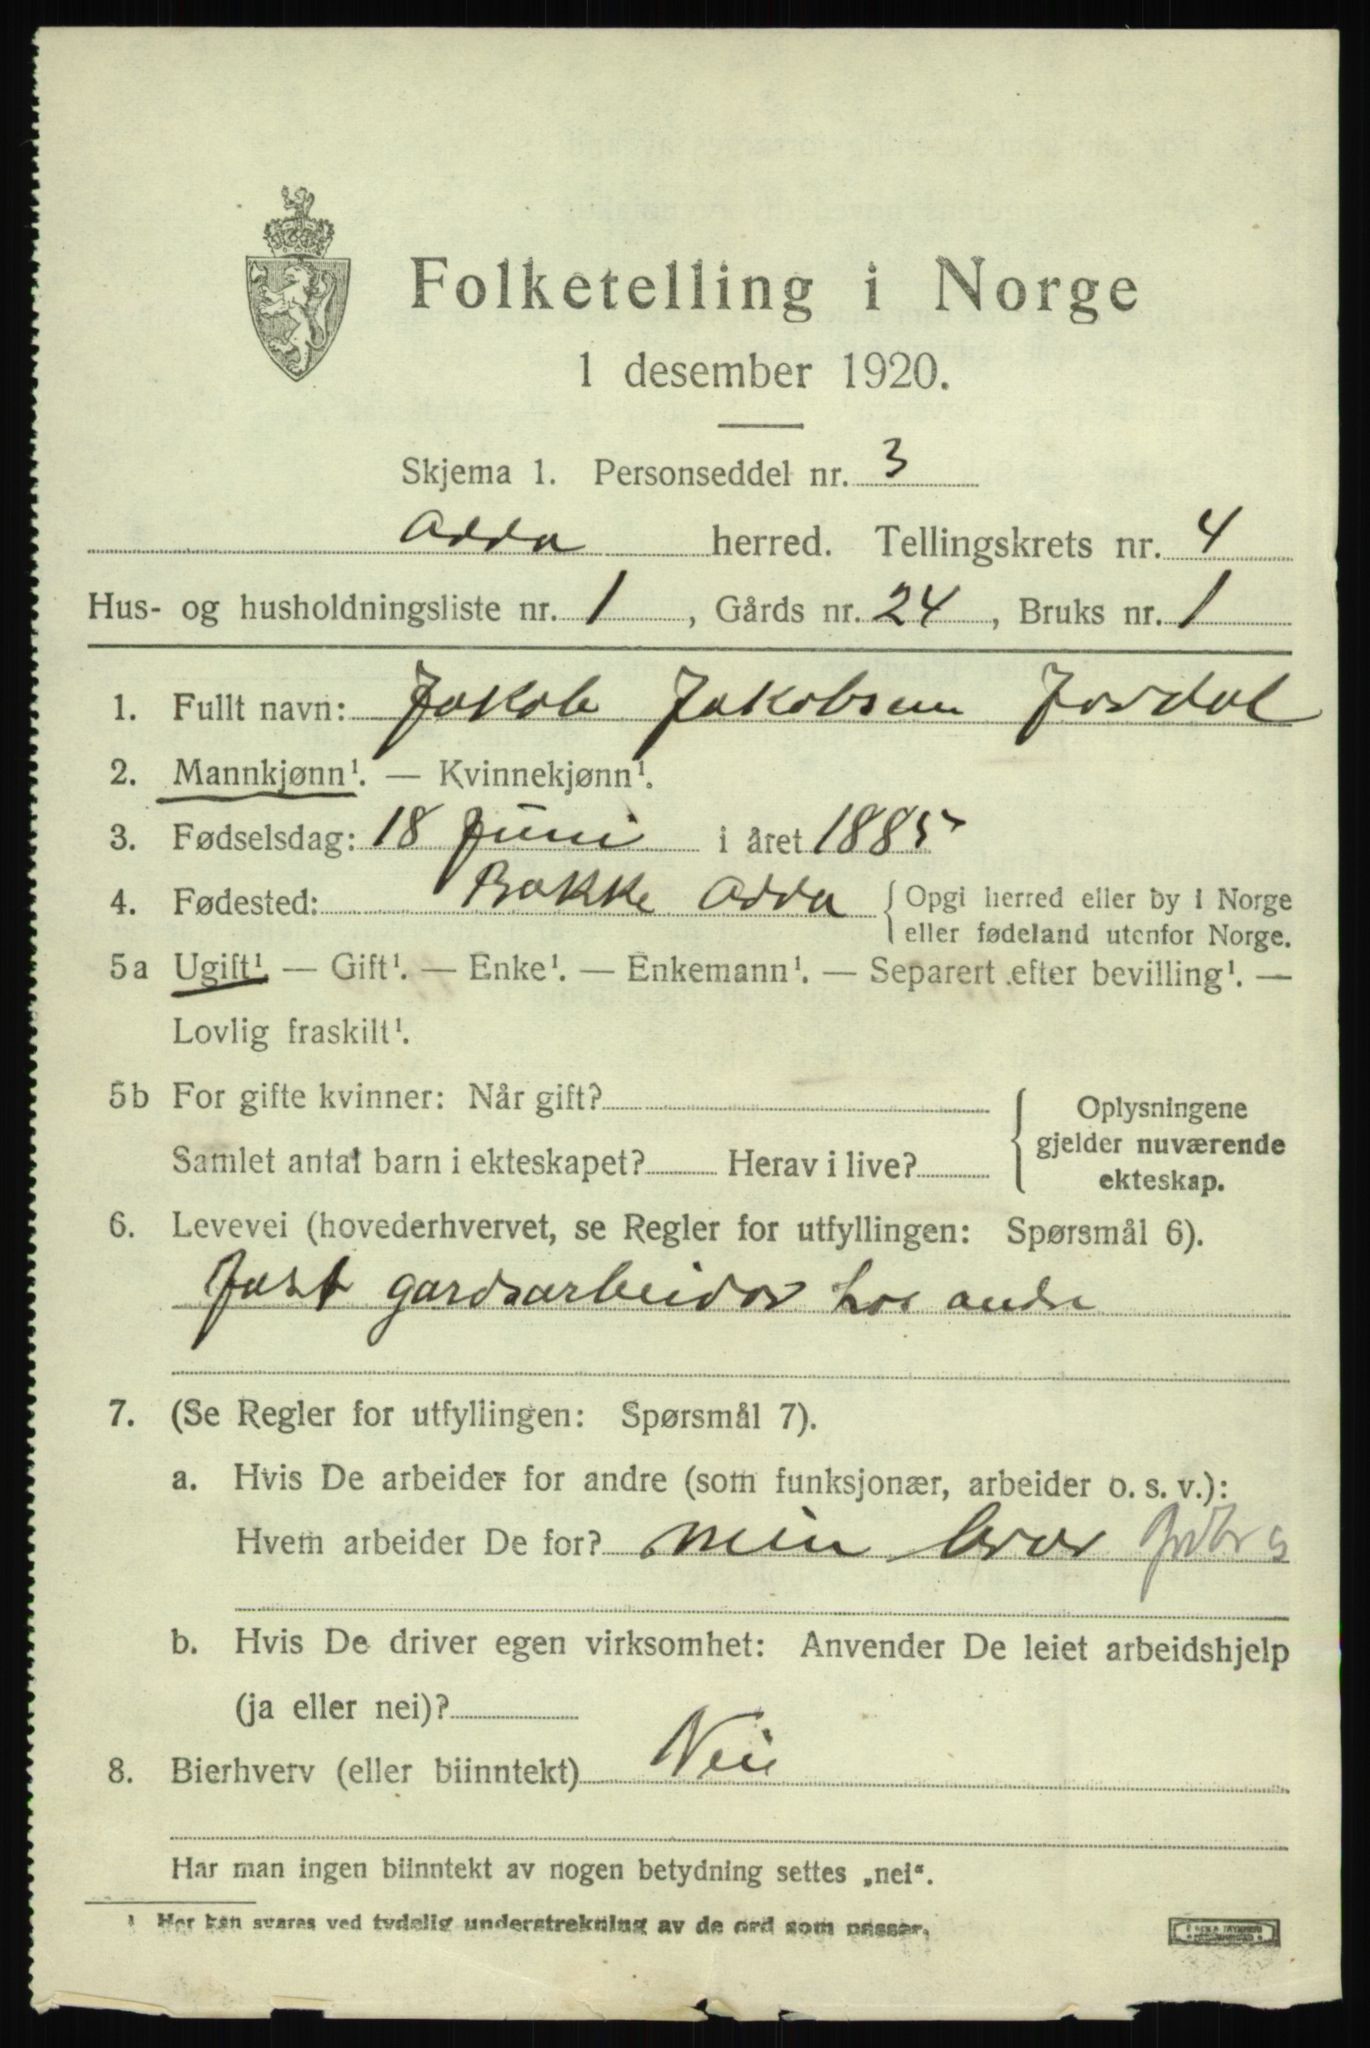 Folketelling i Norge
1 desember 1920.
Skjema 1. Personseddel nr. 3
Odda herred. Tellingskrets nr. 4
Hus- og husholdningsliste nr. 1, Gårds nr. 24, Bruks nr. 1
1. Fullt navn: Jakob Jakobsen Jordal
2. Mannkjønn¹. — Kvinnekjønn¹.
3. Fødselsdag: 18 Juni i året 1885
4. Fødested: Bakke Odda {Opgi herred eller by i Norge
eller fødeland utenfor Norge.
5a Ugift¹ — Gift¹. — Enke¹. — Enkemann¹. — Separert efter bevilling¹. —
Lovlig fraskilt¹.
5b For gifte kvinner: Når gift? { Oplysningene
gjelder nuværende
Samlet antal barn i ekteskapet? Herav i live? ekteskap.
6. Levevei (hovederhvervet, se Regler for utfyllingen: Spørsmål 6).
Fast gardsarbeidar hos andre
7. (Se Regler for utfyllingen: Spørsmål 7).
a. Hvis De arbeider for andre (som funksjonær, arbeider o. s. v.):
Hvem arbeider De for? min bror
b. Hvis De driver egen virksomhet: Anvender De leiet arbeidshjelp
(ja eller nei)?
8. Bierhverv (eller biinntekt) Nei
Har man ingen biinntekt av nogen betydning settes „nei“.
¹ Her kan svares ved tydelig understrekning av de ord som passer.